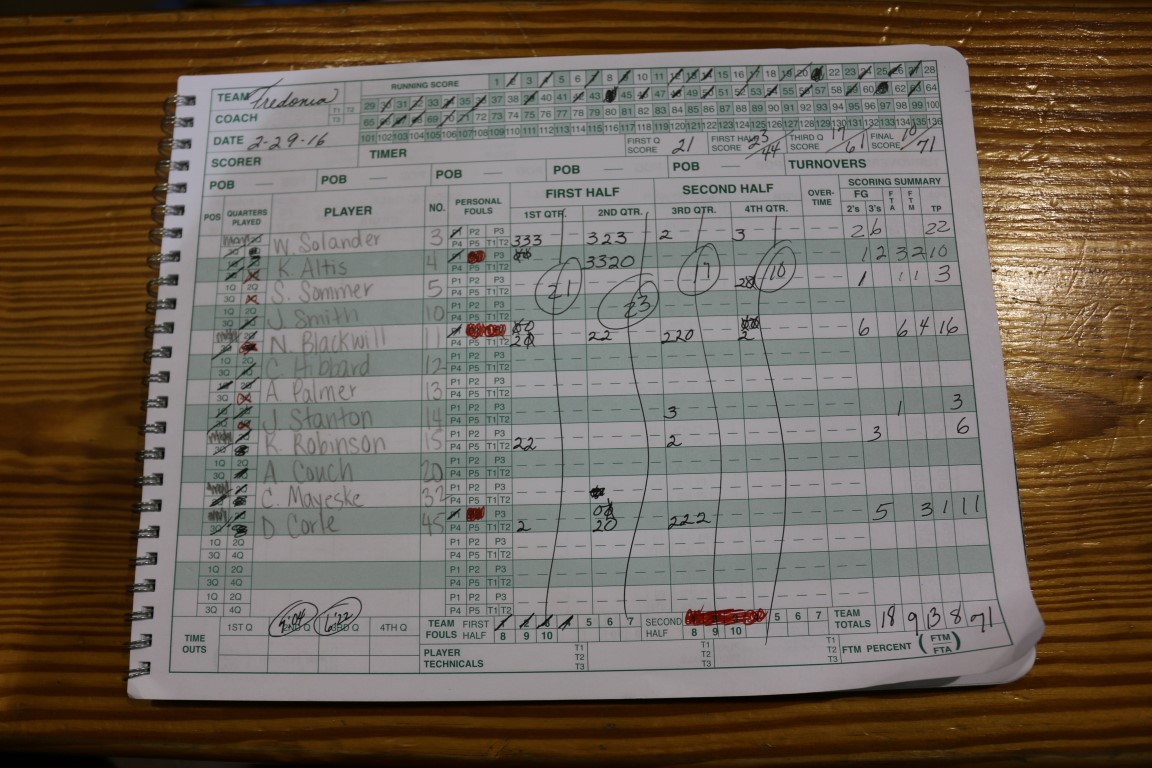 TEAM Fredonia T1 T2 T3
COACH
RUNNING SCORE
1 2 3 4 5 6 7 8 9 10 11 12 13 14 15 16 17 18 19 20 21 22 23 24 25 26 27 28
29 30 31 32 33 34 35 36 37 38 39 40 41 42 43 44 45 46 47 48 49 50 51 52 53 54 55 56 57 58 59 60 61 62 63 64
65 66 67 68 69 70 71 72 73 74 75 76 77 78 79 80 82 83 84 85 86 87 88 89 90 91 92 93 94 95 96 97 98 99 100
101 102 103 104 105 106 107 108 109 110 111 112 113 114 115 116 117 118 119 120 121 122 123 124 125 126 127 128 129 130 131 132 133 134 135 136
DATE 2-29-16
FIRST Q SCORE 21 FIRST HALF SCORE 23/44 THIRD Q SCORE 17/61 FINAL SCORE 10/71
SCORER TIMER
POB — POB — POB — POB — POB — TURNOVERS
POS QUARTERS PLAYED PLAYER NO. PERSONAL FOULS FIRST HALF SECOND HALF OVER-TIME SCORING SUMMARY
1ST QTR. 2ND QTR. 3RD QTR. 4TH QTR. FG 2's 3's FTA FTM TP
W. Solander 3 P2 P3 P4 P5 T1 T2 333 323 2 3 2 6 22
K. Altis 4 P3 P4 P5 T1 T2 3320 1 2 3 2 10
S. Sommer 5 P1 P2 P3 P4 P5 T1 T2 1 1 1 3
J. Smith 10 P1 P2 P3 P4 P5 T1 T2
21 23 17 10
N. Blackwill 11 P4 P5 T1 T2 22 220 2 6 6 4 16
C. Hibbard 12 P1 P2 P3 P4 P5 T1 T2
A. Palmer 13 P1 P2 P3 P4 P5 T1 T2
J. Stanton 14 P1 P2 P3 P4 P5 T1 T2 3 1 3
K. Robinson 15 P1 P2 P3 P4 P5 T1 T2 22 2 3 6
A. Couch 20 P1 P2 P3 P4 P5 T1 T2
C. Mayeske 32 P1 P2 P3 P4 P5 T1 T2
D. Corle 45 P3 P4 P5 T1 T2 2 20 222 5 3 1 11
1Q 2Q P1 P2 P3
3Q 4Q P4 P5 T1 T2
1Q 2Q P1 P2 P3
3Q 4Q P4 P5 T1 T2
1Q 2Q P1 P2 P3
3Q 4Q P4 P5 T1 T2
TIME OUTS 1ST Q 2ND Q 3RD Q 4TH Q
TEAM FOULS FIRST HALF 5 6 7 8 9 10 SECOND HALF 5 6 7 8 9 10
TEAM TOTALS 18 9 13 8 71
PLAYER TECHNICALS T1 T2 T3 T1 T2 T3 T1 T2 T3
FTM PERCENT (FTM/FTA)